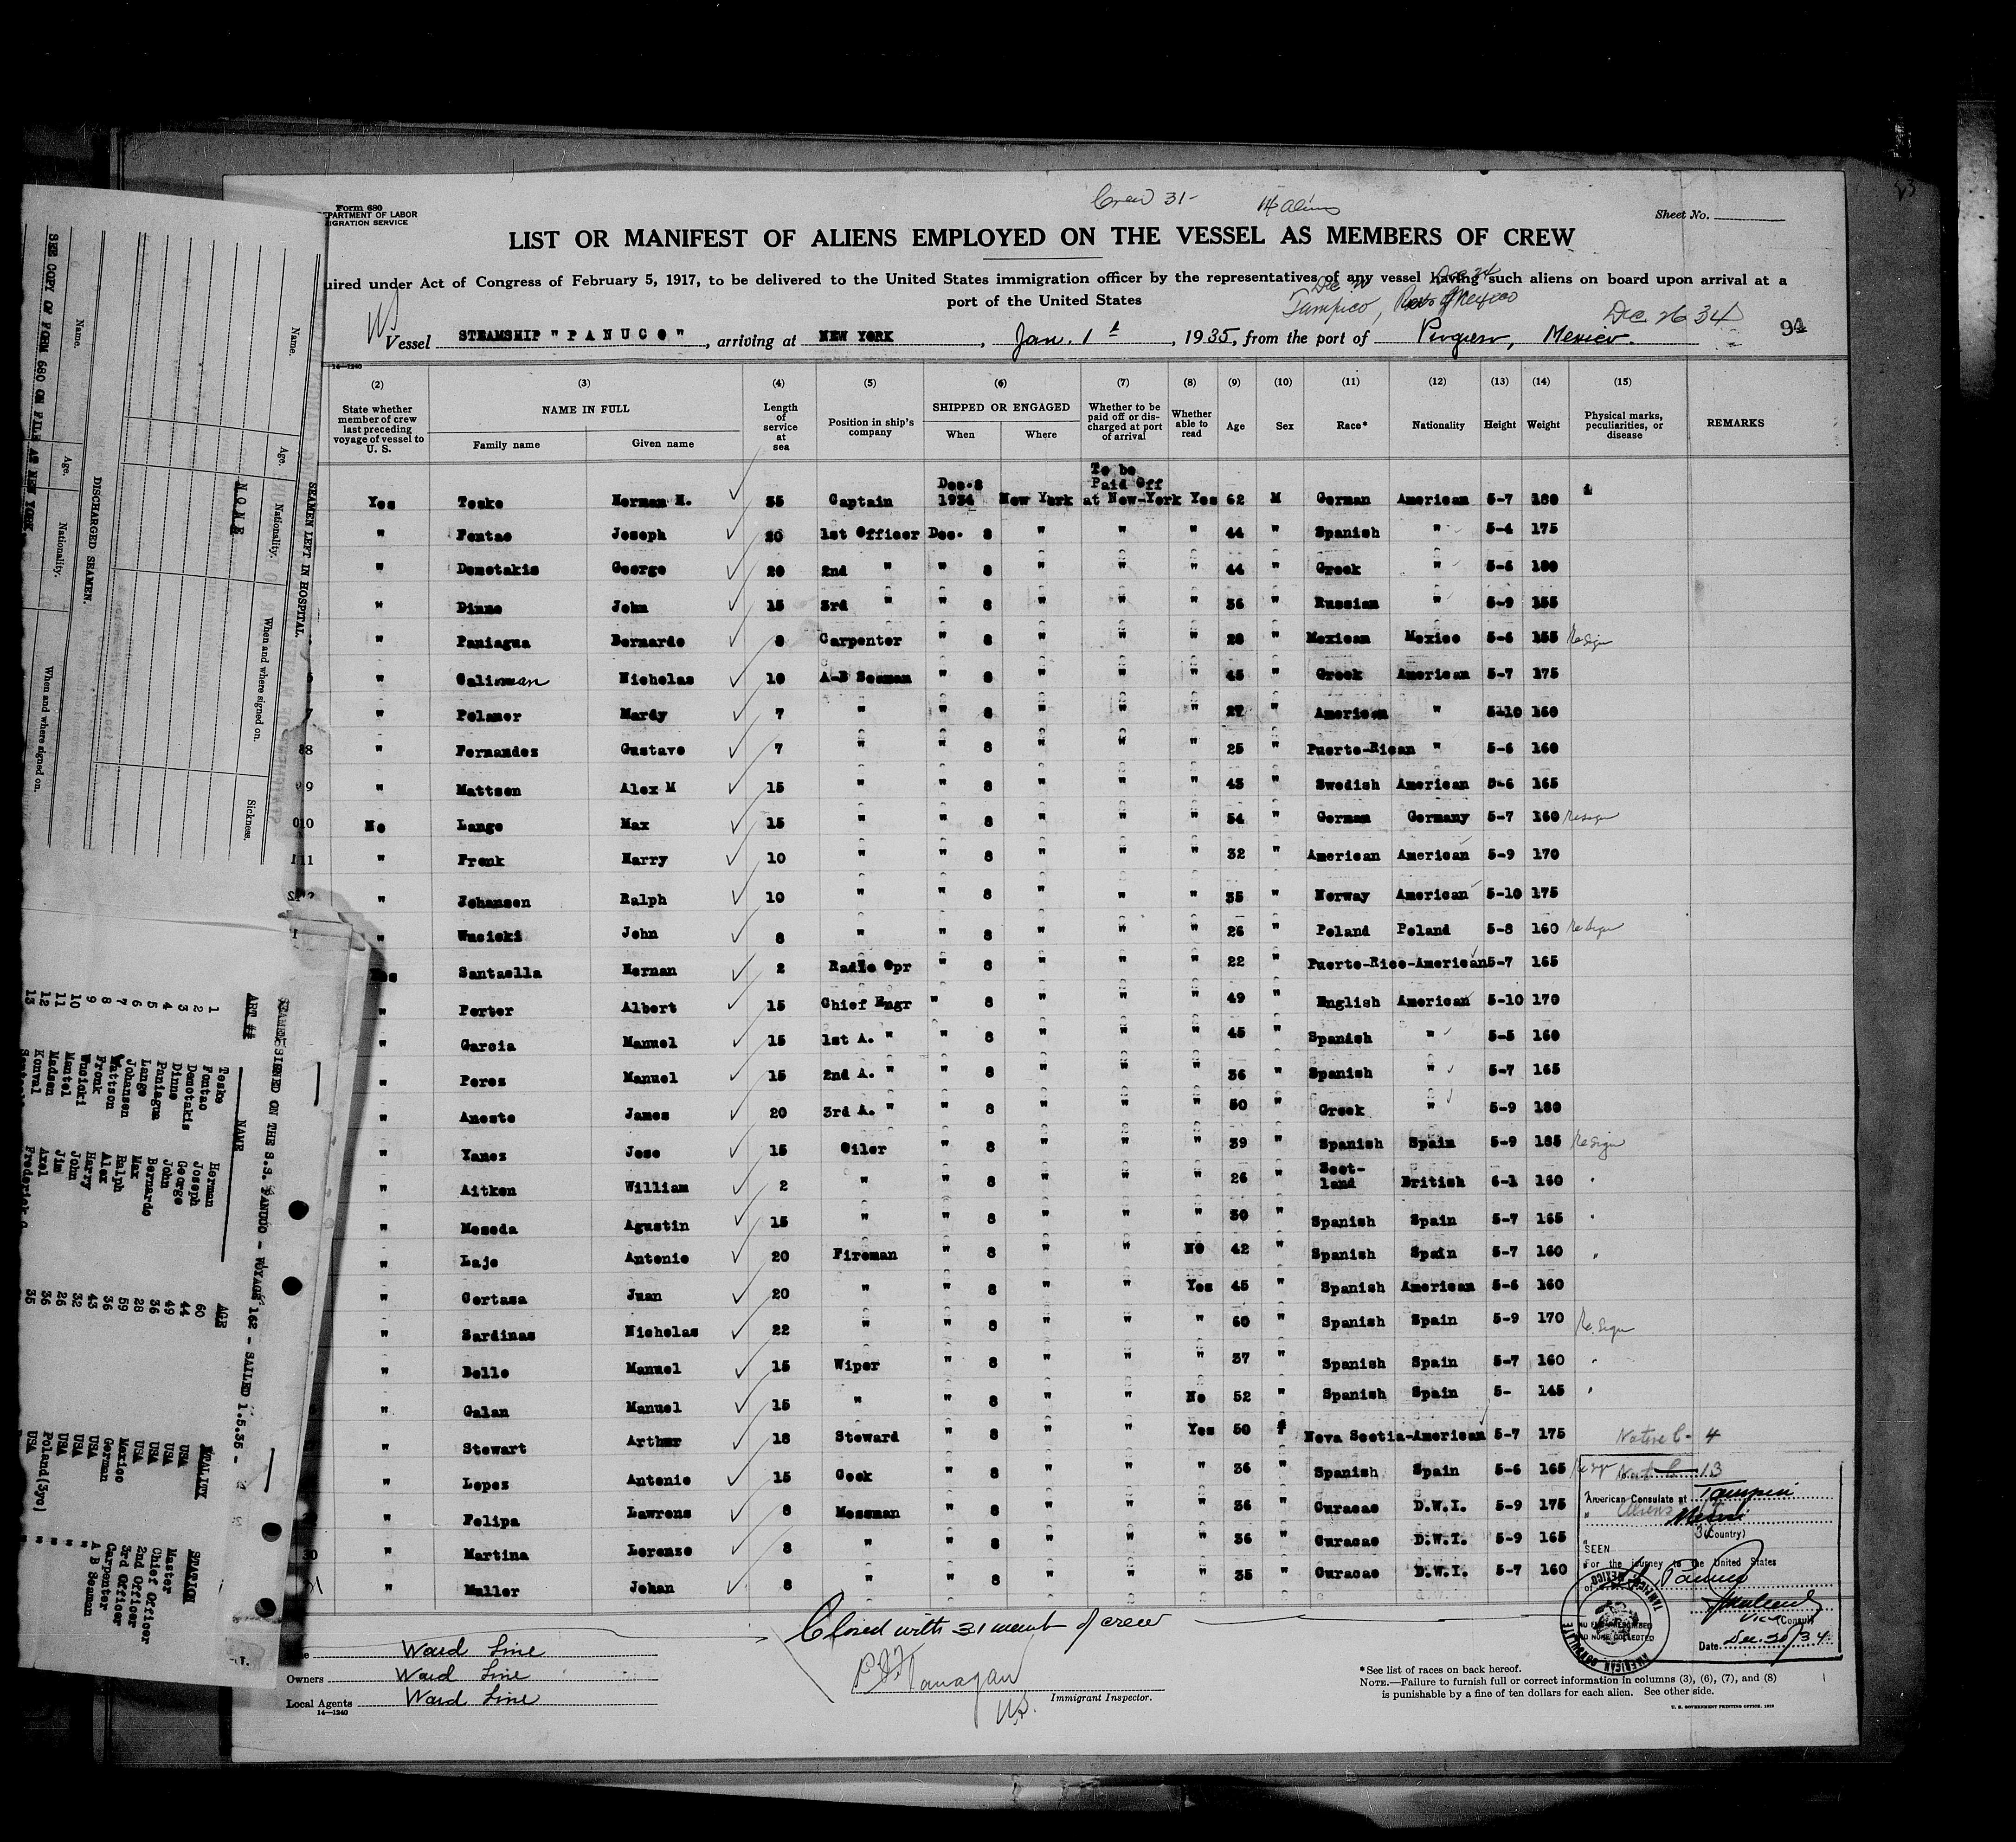 Crew 31- 14 aliens
Form 680
DEPARTMENT OF LABOR
IGRATION SERVICE
Sheet No.
LIST OR MANIFEST OF ALIENS EMPLOYED ON THE VESSEL AS MEMBERS OF CREW
uired under Act of Congress of February 5, 1917, to be delivered to the United States immigration officer by the representatives of any vessel having such aliens on board upon arrival at a
port of the United States
Tampico, Mexico
Dec 26 34
Vessel STEAMSHIP "PANUCO", arriving at NEW YORK, Jan. 1st, 1935, from the port of Progreso, Mexico.
94
14-1240
(2) (3) (4) (5) (6) (7) (8) (9) (10) (11) (12) (13) (14) (15)
State whether member of crew last preceding voyage of vessel to U. S.
NAME IN FULL
Family name Given name
Length of service at sea
Position in ship's company
SHIPPED OR ENGAGED
When Where
Whether to be paid off or discharged at port of arrival
Whether able to read
Age Sex Race* Nationality Height Weight
Physical marks, peculiarities, or disease
REMARKS
Yes Teske Herman H. 35 Captain Dec. 8 1934 New York To be Paid Off at New-York Yes 62 M German American 5-7 180
" Fontao Joseph 20 1st Officer Dec. 8 " " " 44 " Spanish " 5-4 175
" Demotakis George 20 2nd " " 8 " " " 44 " Greek " 5-6 180
" Dinne John 15 3rd " " 8 " " " 36 " Russian " 5-9 155
" Paniagua Bernardo 8 Carpenter " 8 " " " 28 " Mexican Mexico 5-6 155 Resign
" Galisman Nicholas 10 A-B Seaman " 8 " " " 45 " Greek American 5-7 175
7 " Polmer Hardy 7 " " 8 " " " 27 " American " 5-10 160
8 " Fernandez Gustavo 7 " " 8 " " " 25 " Puerto-Rican " 5-6 160
9 " Mattsen Alex M 15 " " 8 " " " 43 " Swedish American 5-6 165
10 No Lange Max 15 " " 8 " " " 54 " German Germany 5-7 160 Resign
11 " Fronk Harry 10 " " 8 " " " 32 " American American 5-9 170
" Johansen Ralph 10 " " 8 " " " 35 " Norway American 5-10 175
" Wucicki John 8 " " 8 " " " 26 " Poland Poland 5-8 160 Resign
Santaella Hernan 2 Radio Opr " 8 " " " 22 " Puerto-Rico-American 5-7 165
" Porter Albert 15 Chief Engr " 8 " " " 49 " English American 5-10 170
" Garcia Manuel 15 1st A. " " 8 " " " 45 " Spanish " 5-5 160
" Perez Manuel 15 2nd A. " " 8 " " " 36 " Spanish " 5-7 165
" Aneste James 20 3rd A. " " 8 " " " 50 " Greek " 5-9 180
" Yanez Jose 15 Oiler " 8 " " " 39 " Spanish Spain 5-9 185 Resign
" Aitken William 2 " " 8 " " " 26 " Scot-land British 6-1 160
" Meseda Agustin 15 " " 8 " " " 30 " Spanish Spain 5-7 165
" Laje Antonio 20 Fireman " 8 " " No 42 " Spanish Spain 5-7 160
" Cortasa Juan 20 " " 8 " " Yes 45 " Spanish American 5-6 160
" Sardinas Nicholas 22 " " 8 " " " 60 " Spanish Spain 5-9 170 Re.Sign
" Bello Manuel 15 Wiper " 8 " " " 37 " Spanish Spain 5-7 160
" Galan Manuel 15 " " 8 " " No 52 " Spanish Spain 5- 145
" Stewart Arthur 18 Steward " 8 " " Yes 50 " Nova Scotia-American 5-7 175
" Lopez Antonio 15 Cook " 8 " " " 36 " Spanish Spain 5-6 165
" Felipa Lawrens 8 Messman " 8 " " " 36 " Curacao D.W.I. 5-9 175
30 " Martina Lorenzo 8 " " 8 " " " 36 " Curacao D.W.I. 5-9 165
" Muller Johan 8 " " 8 " " " 35 " Curacao D.W.I. 5-7 160
Native C- 4
13
American Consulate at Tampico
Mexico
(Country)
SEEN
For the journey to the United States
Panuco
Vice (Consul)
Date Dec. 20/34
AMERICAN CONSULATE TAMPICO MEXICO
NO FEE PRESCRIBED
NO NONE COLLECTED
Closed with 31 memb of crew
Ward Line
Owners Ward Line
Local Agents Ward Line
14-1240
Immigrant Inspector.
*See list of races on back hereof.
NOTE.—Failure to furnish full or correct information in columns (3), (6), (7), and (8)
is punishable by a fine of ten dollars for each alien. See other side.
U. S. GOVERNMENT PRINTING OFFICE
SEAMEN LEFT IN HOSPITAL.
Name. Age. Nationality. When and where signed on. Sickness.
NONE
DISCHARGED SEAMEN.
Name. Age. Nationality. When and where signed on.
SEE COPY OF FORM 680 ON FILE AT NEW YORK
SEAMEN SIGNED ON THE S.S. PANUCO - VOYAGE 162 - SAILED 1.5.35-
ART ## NAME AGE NTALITY STATION
1 Teske Herman 60 USA Master
2 Fontao Joseph 44 USA Chief Officer
3 Demotakis George 49 USA 2nd Officer
4 Dinne John 36 USA 3rd Officer
5 Paniagua Bernardo 28 Mexico Carpenter
6 Lange Max 59 German A B Seaman
7 Johansen Ralph 36 USA "
8 Mattson Alex 43 USA "
9 Fronk Harry 32 USA "
10 Wucicki John 26 Poland(3yo) "
11 Mantel Jim
12 Madsen Axel 36
13 Konval Frederick 35